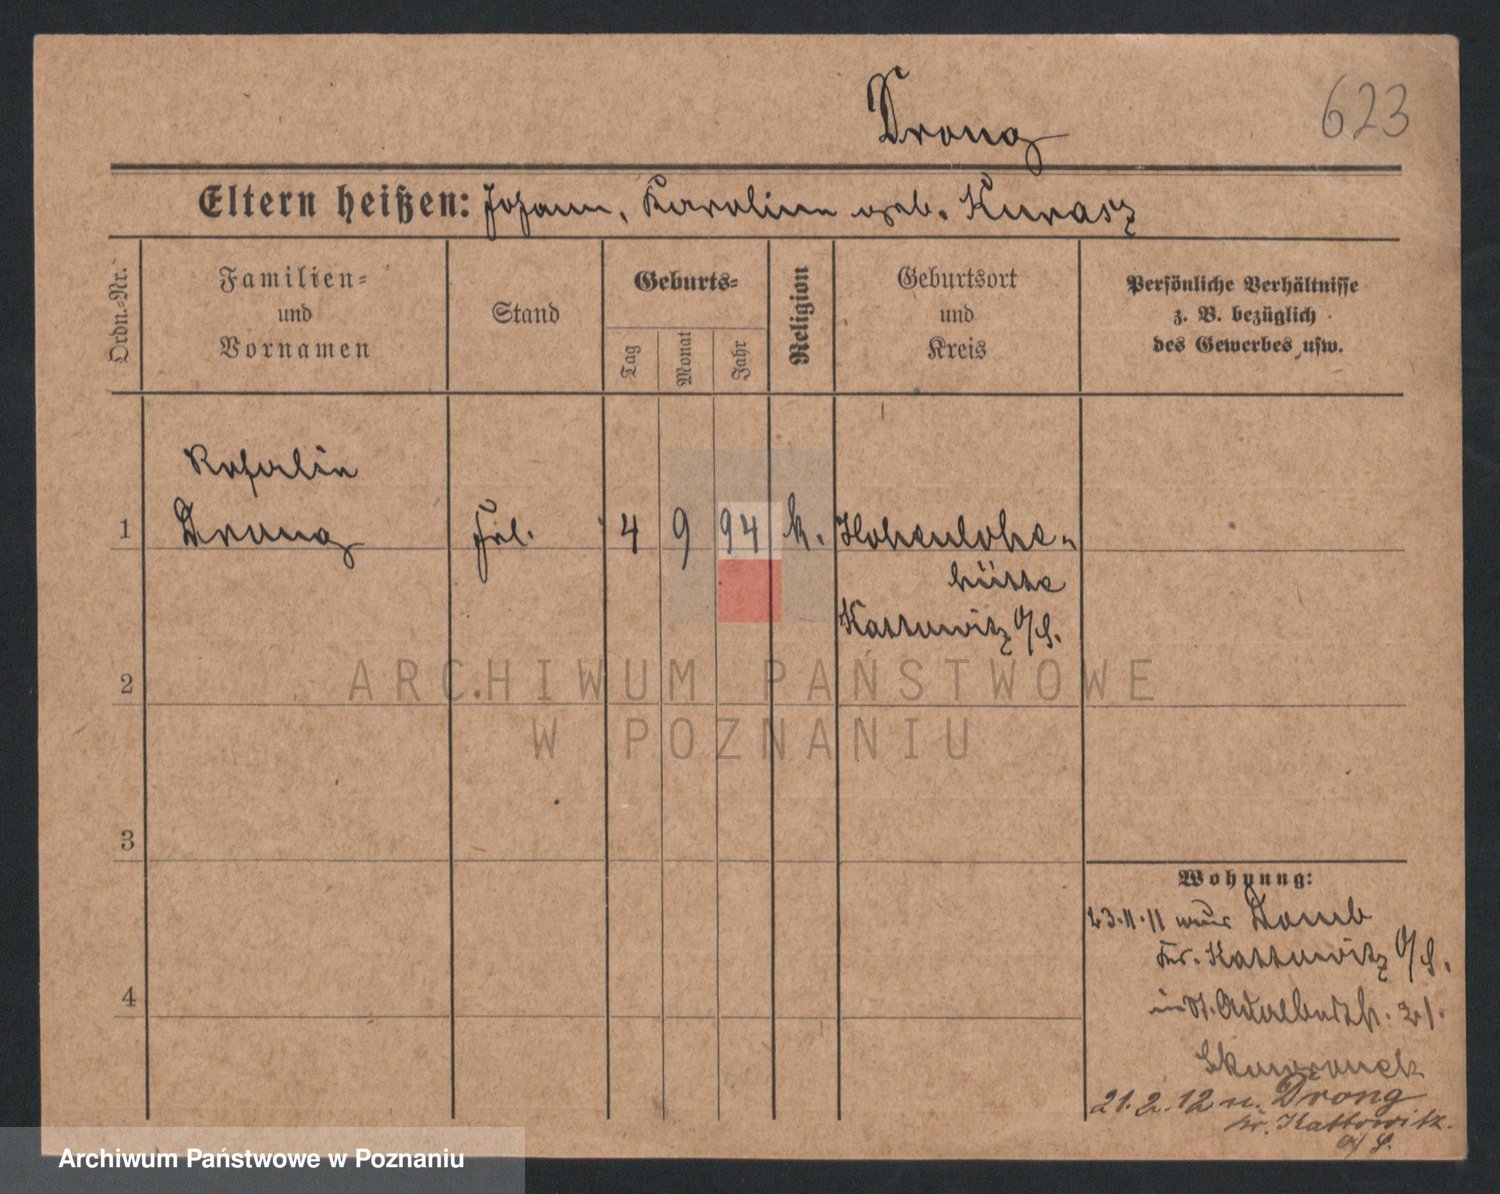 Drong
623
Eltern heißen: Johann, Karoline geb. Kurasz
Ordn.-Nr.
Familien-
und
Vornamen
Stand
Geburts-
Tag
Monat
Jahr
Religion
Geburtsort
und
Kreis
Persönliche Verhältnisse
z. B. bezüglich
des Gewerbes usw.
Rosalie
1 Drong Frl. 4 9 94 k. Hohenlohe-
hütte
Kattowitz O/S.
ARCHIWUM PAŃSTWOWE
2
W POZNANIU
3
Wohnung:
23.11.11 Domb
Kr. Kattowitz O/S.
4
in St. Adalbertstr. 21.
Skowronek
21.2.12 n. Drong
Kr. Kattowitz.
O/S.
Archiwum Państwowe w Poznaniu